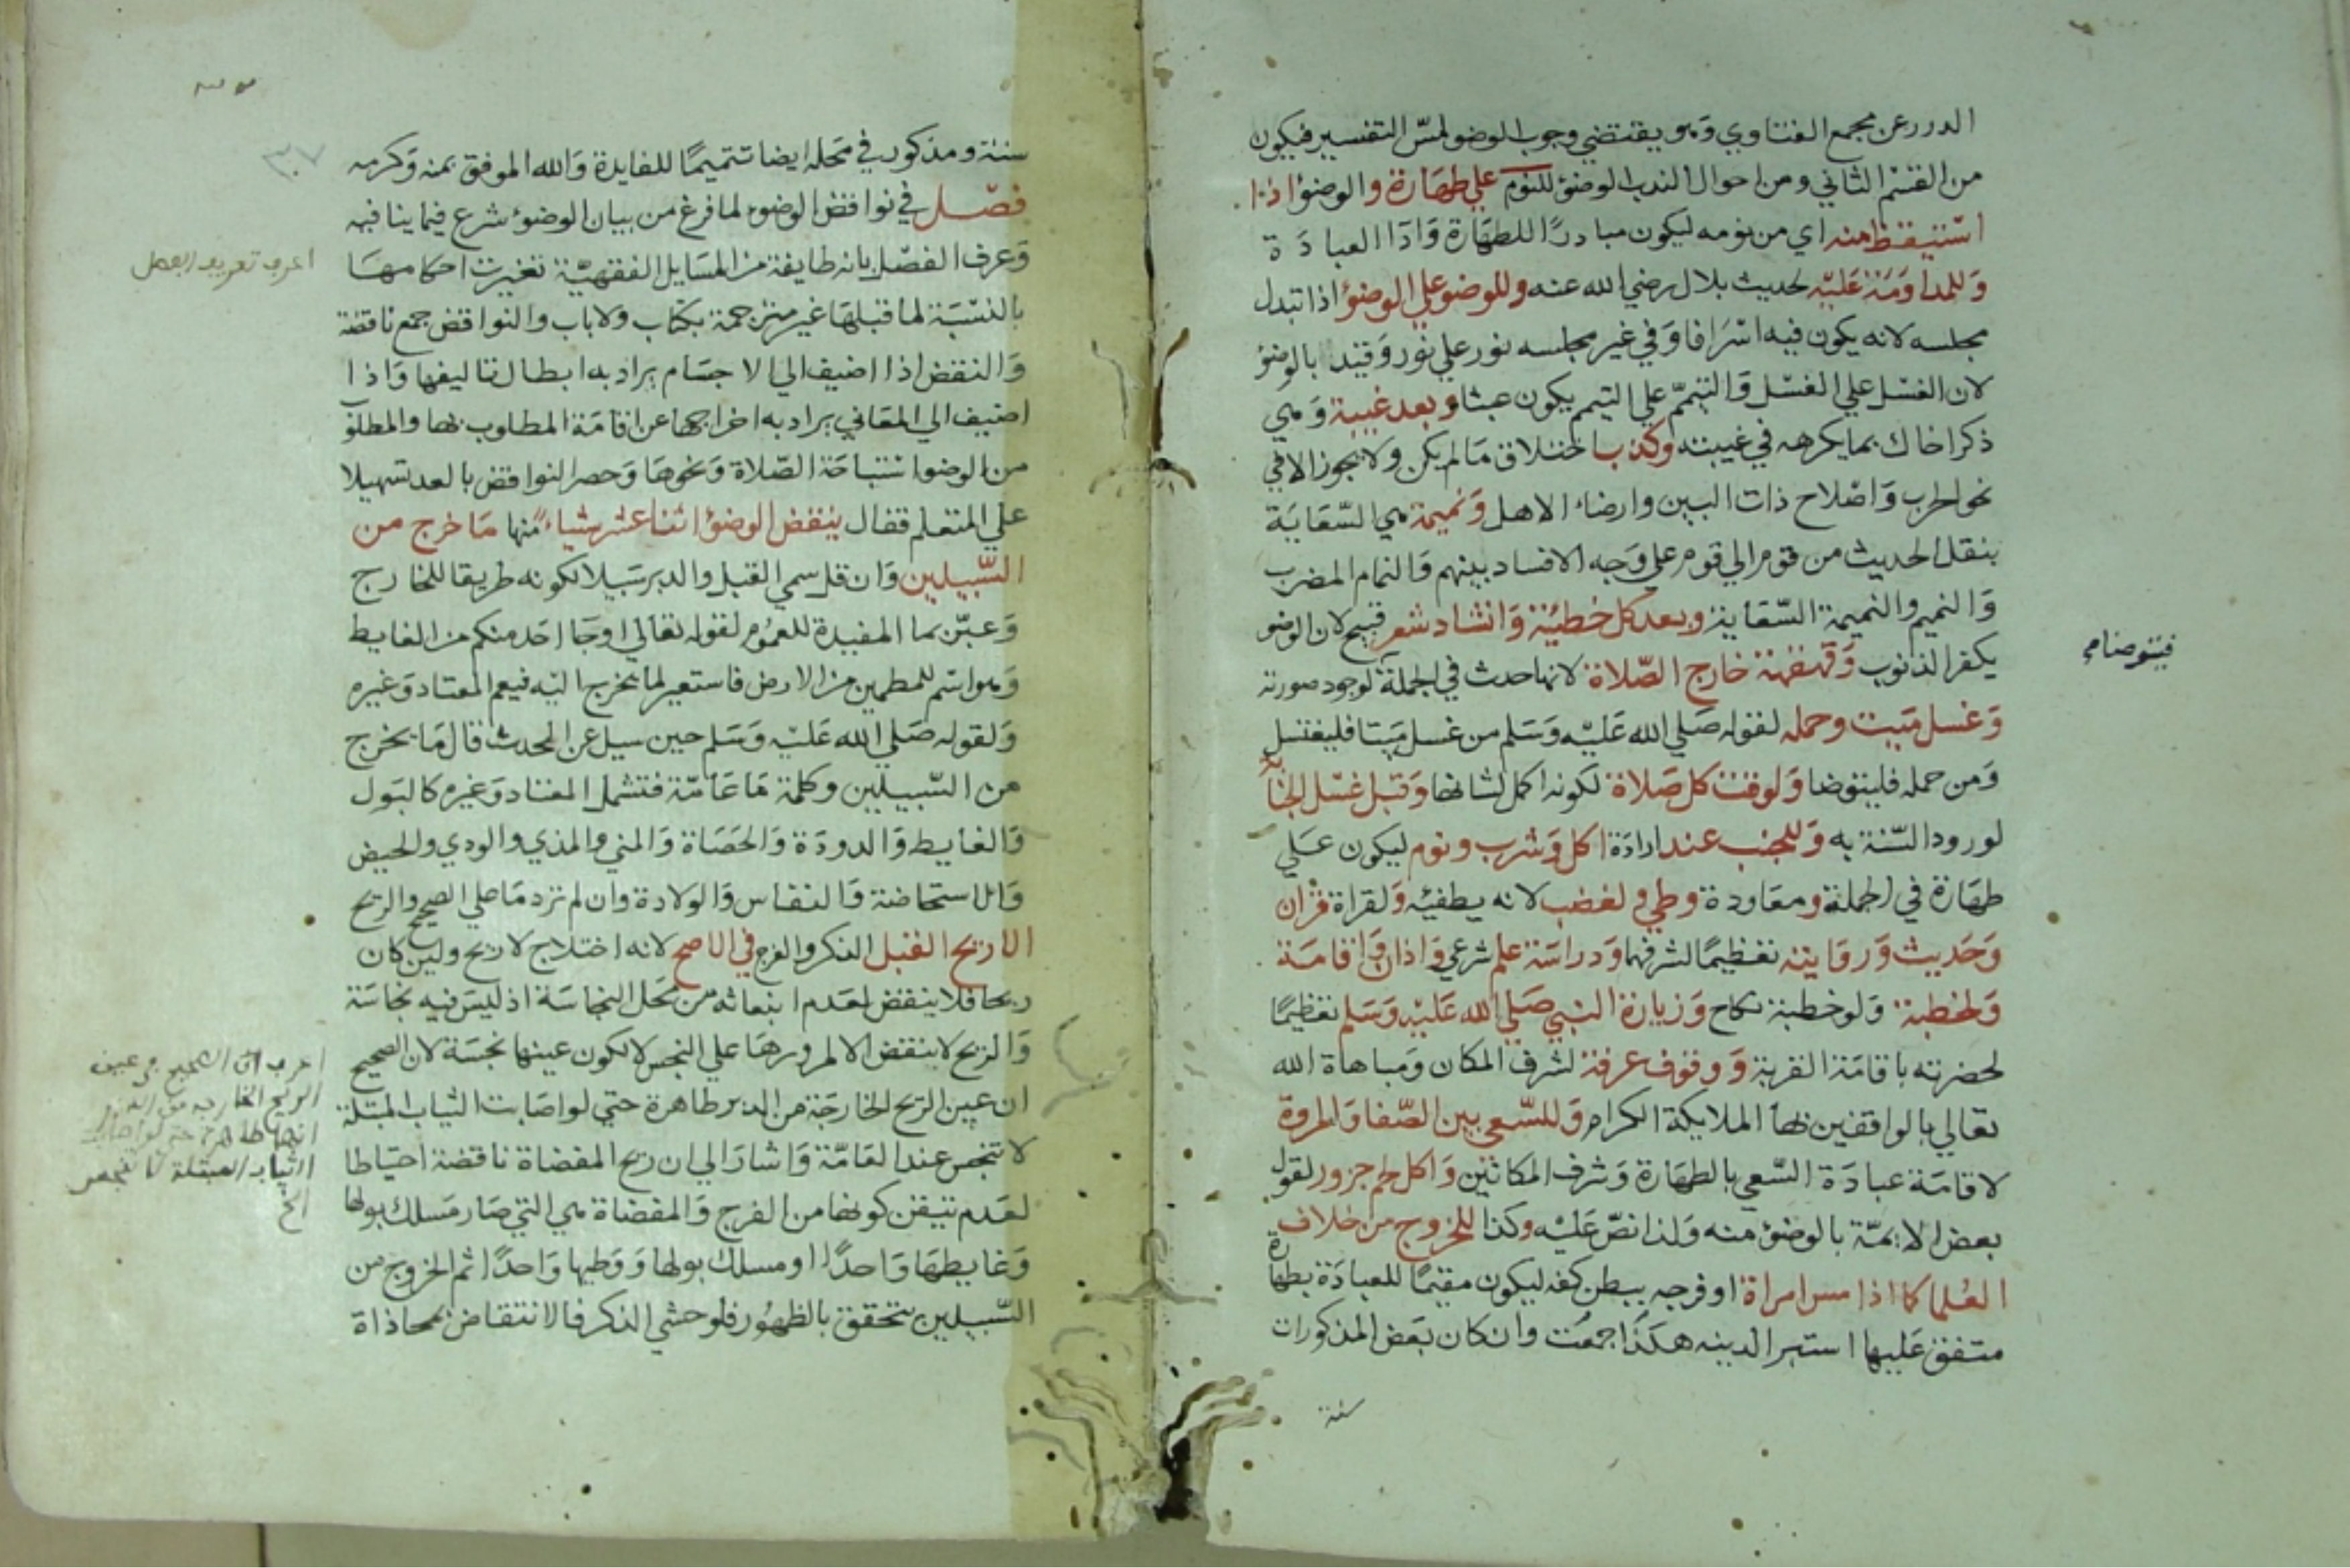 الدرر عن مجمع الفتاوي وهو يقتضي وجوب الوضو لمسّ التفسير فيكون
من القسم الثاني ومن احوال الندب الوضوء للنوم علي طهارة والوضوء اذا
استيقظ منه اي من نومه ليكون مبادرًا للطهارة وَادَا العبادَة
وَللمداوَمَة عَليه لحديث بلال رضي الله عنه وللوضو علي الوضوء اذا تبدل
مجلسه لانه يكون فيه اسْرَافا وَفي غير مجلسه نور علي نور وَقيد بالوضوء
لان الغسل علي الغسل وَالتيمّم علي التيمم يكون عبثا وبعد غيبة وَهي
ذكرا خاك بما يكرهه في غيبته وكذب اختلاق مَا لم يكن ولا يجوز الا في
نحو الحرب وَاصْلاح ذات البين وارضاء الاهل وَنميمة هي السّعَايَة
بنقل الحديث من قوم الي قوم علي وَجه الافساد بينهم وَالنمام المضرب
وَالنميم والنميمة السّعَاية وبعد كل خطيئة وَانشاد شعر قبيح لان الوضو
يكفر الذنوب وَقهقهة خارج الصّلاة لانها حدث في الجملة لوجود صورته
وَغسل ميت وحمله لقوله صَلي الله عَليه وَسَلم من غسل ميتا فليغتسل
وَمن حمله فليتوضا وَلوقت كل صَلاة لكونه اكمل لشانها وَقبل غسْل الجنابة
لورود السّنة به وَللجنب عند ارادَة اكل وَشرب ونوم ليكون عَلي
طهَارَة في الجملة ومعَاودة وطي ولغضب لانه يطفئه وَلقراة قرْان
وَحَديث وَروَايته تعظيمًا لشرفهما وَدراسَة علم شرعي وَاذان وَاقامَة
وَلخطبة وَلو خطبة نكاح وَزيارة النبي صَلي الله عَليْه وَسَلم تعظيمًا
لحضرته باقامَة القربة وَوقوف عرفة لشرف المكان وَمباهاة الله
تعالي بالواقفين بها الملايكة الكرام وَللسّعي بين الصّفا وَالمروة
لاقامَة عبادَة السّعي بالطهَارة وَشرف المكانين وَاكل لحم جزور لقول
بعض الايمّة بالوضوء منه وَلذا نصّ عَليْه وكذا للخروج من خلاف
العُلما كما اذا مس امراة او فرجه ببطن كفه ليكون مقيمًا للعبادَة بطهارة
متفق عَليها استبرا لدينه هكذَا جمعْت وان كان بعَض المذكورات
سنة
سنة ومذكور في مَحله ايضا تتميمًا للفايدة وَالله الموفق بمنه وَكرمه
فصّل في نواقض الوضوء لما فرغ من بيان الوضوء شرع فيما ينافيه
وَعرف الفصّل بانه طايفة من المسَايل الفقهيّة تغيرت احكامهَا
بالنسْبَة لما قبلهَا غير مترجمة بكتاب ولا باب والنواقض جمع ناقضة
وَالنقض اذا اضيف الي الاجسَام يراد به ابطال تاليفها وَاذا
اضيف الي المعَاني يراد به اخراجها عن اقامَة المطلوب بها والمطلوب
من الوضو استباحَة الصّلاة وَنحوهَا وَحصر النواقض بالعد تسهيلا
علي المتعلم فقال ينقض الوضوء اثنا عشر شيا منها مَا خرج من
السّبيلين وَان قل سمي القبل والدبر سَبيلا لكونه طريقا للخارج
وَعبّر بما المفيدة للعمُوم لقوله تعَالي اوجَا احَد منكم من الغايط
وَهو اسْم للمطمين من الارض فاستعير لما يخرج اليْه فيعم المعتاد وَغيره
وَلقوله صَلي الله عَليْه وَسَلم حين سيل عن الحدث قال مَا يخرج
من السّبيلين وكلمة مَا عَامّة فتشمل المعتاد وَغيره كالبَول
وَالغايط وَالدودَة وَالحَصَاة وَالمني والمذي والودي والحيض
وَالاستحاضة وَالنفاس وَالولادة وان لم تر دمَا علي الصحيح والريح
الا ريح القبل الذكر والفرج في الاصح لانه اختلاج لا ريح ولين كان
ريحا فلا ينقض لعَدم انبعاثه من مَحل النجاسَة اذ ليسَ فيه نجاسَة
وَالريح لا ينقض الا لمرورهَا علي النجس لا لكون عينها نجسَة لان الصحيح
ان عين الريح الخارجَة من الدبر طاهرة حتي لو اصَابت الثياب المبتلة
لا تنجس عند العَامّة وَاشارَ الي ان ريح المفضاة ناقضة احتياطا
لعَدم تيقن كونها من الفرج وَالمفضاة هي التي صَار مَسلك بولها
وَغايطهَا وَاحدًا او مسلك بولها وَوَطيها وَاحدًا ثم الخروج من
السّبيلين يتحقق بالظهُور فلو حشي الذكر فالانتقاض بمحاذاة
اعرف تعريف الفصل
اعرف ان الصحيح ان عين
الريح الخارجه من الدبر
انها طاهرة حتى لو اصابت
الثياب المبتلة لا تنجس
الخ